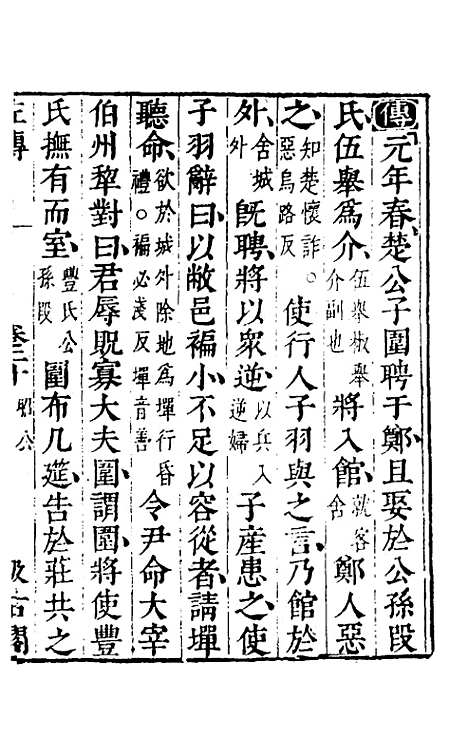 傳元年春楚公子圍聘于鄭且娶於公孫段
氏伍舉爲介伍舉椒舉介副也將入館就客舍鄭人惡
之知楚懷詐。惡烏路反使行人子羽與之言乃館於
外舍城外旣聘將以衆逆以兵入逆婦子產患之使
子羽辭曰以敝邑褊小不足以容從者請墠
聽命欲於城外除地爲墠行昏禮。褊必淺反墠音善令尹命大宰
伯州犂對曰君辱貺寡大夫圍謂圍將使豐
氏撫有而室豐氏公孫段圍布几筵告於莊共之
左傳 卷二十 昭公 汲古閣